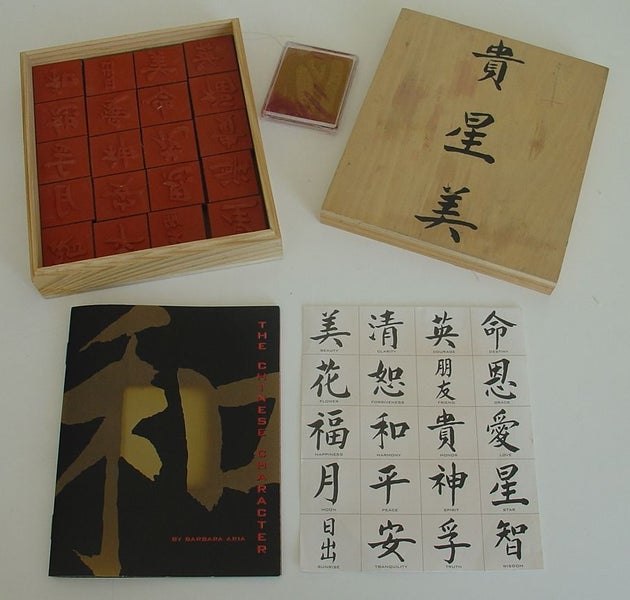 貴
星
美
THE CHINESE CHARACTER
和
BY BARBARA ARIA
美 清 英 命
BEAUTY CLARITY COURAGE DESTINY
花 恕 朋友 恩
FLOWER FORGIVENESS FRIEND GRACE
福 和 貴 愛
HAPPINESS HARMONY HONOR LOVE
月 平 神 星
MOON PEACE SPIRIT STAR
日出 安 孚 智
SUNRISE TRANQUILITY TRUTH WISDOM